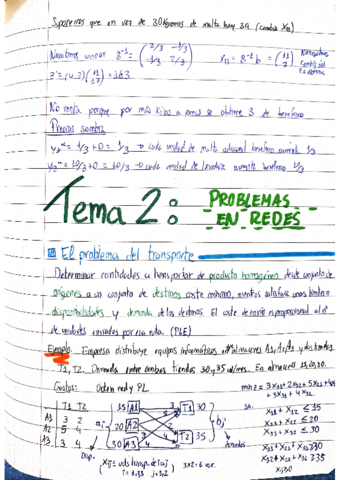 Suponemos que en vez de 30 kilogramos de malta hay 36 (cambia XB)
Necesitamos conocer B⁻¹ = ( 2/3 -1/3
-1/3 2/3 )
XB = B⁻¹b = ( 11
7 )
No renta porque por más kilos a penas se obtiene 3 de beneficio
Precios sombra
+ 0 = 1/3 → cada unidad de malta adicional beneficio aumenta 1/3
= 10/3 + 0 = 10/3 → cada unidad de levadura aumenta beneficio 10/3
Tema 2:
PROBLEMAS
EN REDES
El problema del transporte
Determinar cantidades a transportar de producto homogéneo desde conjunto de
orígenes a un conjunto de destinos coste mínimo, mientras satisface unos límites
disponibilidades y demanda de los destinos. El coste de envío es proporcional al nº
de unidades enviadas por esa ruta. (PLE)
Ejemplo. Empresa distribuye equipos informáticos nº almacenes A1, A2, A3 y dos tiendas
T1, T2. Demanda entre ambas tiendas 30 y 35 ud/mes. En almacenes 15, 20, 30.
Costes:
T1 T2
A1 3 2
A2 5 4
A3 3 4
Obtener red y PL
ai
15 A1
20 A2
30 A3
T1 30
T2 35
bj
Disp.
Demandas
3x2 = 6 var.
x11 + x12 ≤ 15
x21 + x22 ≤ 20
x31 + x32 ≤ 30